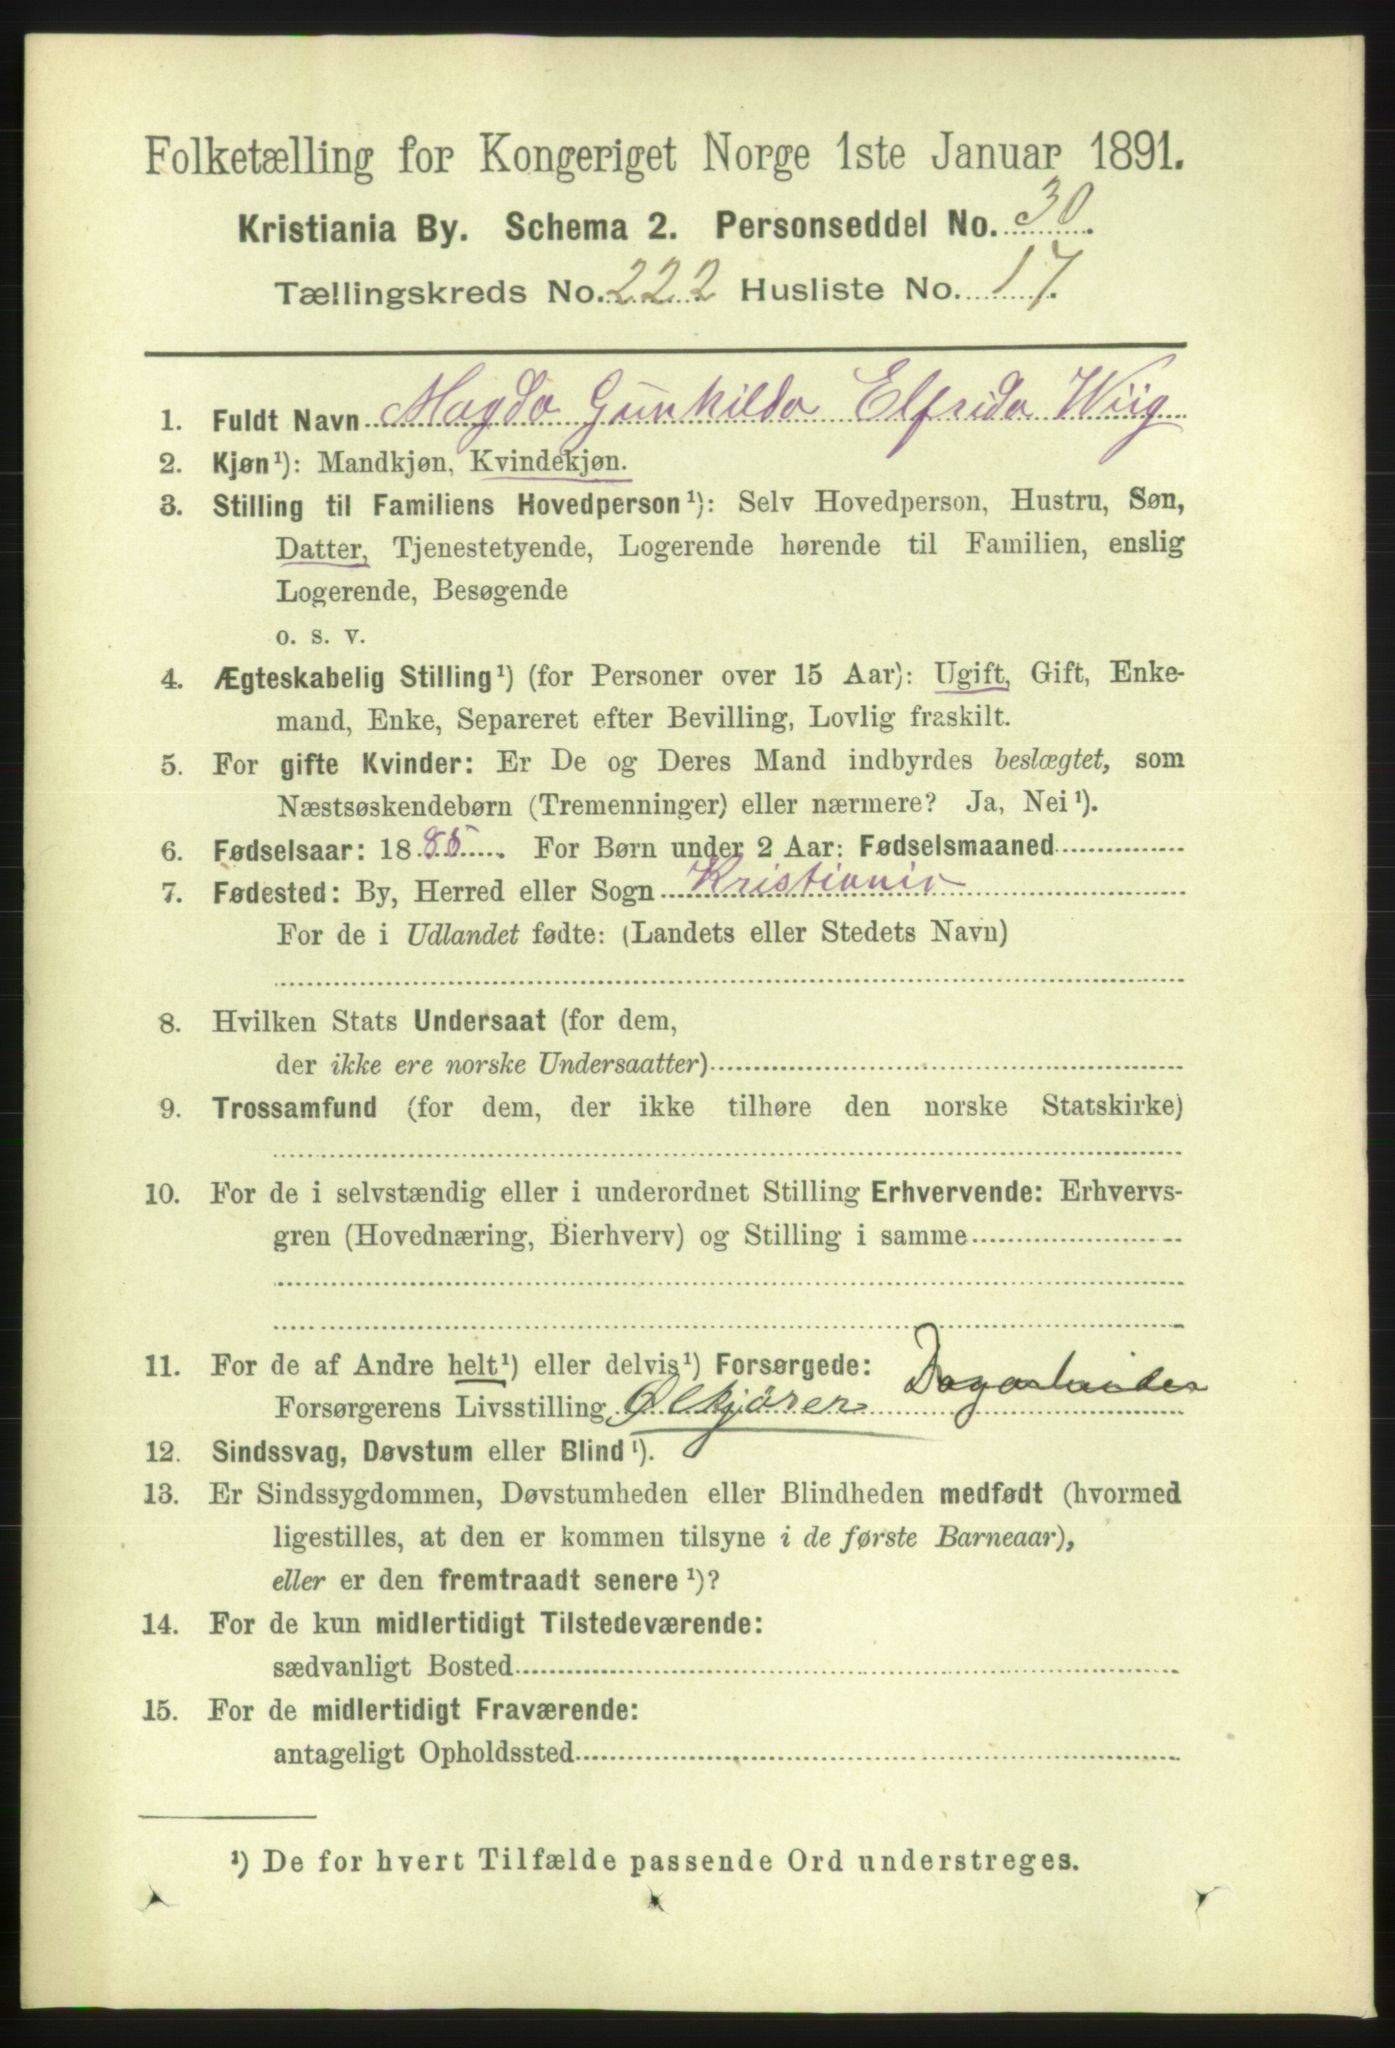 Folketælling for Kongeriget Norge 1ste Januar 1891.
Kristiania By. Schema 2. Personseddel No. 30.
Tællingskreds No. 222 Husliste No. 17.
1. Fuldt Navn Magda Gunhilda Elfrida Wiig
2. Kjøn¹): Mandkjøn, Kvindekjøn.
3. Stilling til Familiens Hovedperson¹): Selv Hovedperson, Hustru, Søn,
Datter, Tjenestetyende, Logerende hørende til Familien, enslig
Logerende, Besøgende
o. s. v.
4. Ægteskabelig Stilling¹) (for Personer over 15 Aar): Ugift, Gift, Enke-
mand, Enke, Separeret efter Bevilling, Lovlig fraskilt.
5. For gifte Kvinder: Er De og Deres Mand indbyrdes beslægtet, som
Næstsøskendebørn (Tremenninger) eller nærmere? Ja, Nei¹).
6. Fødselsaar: 1885. For Børn under 2 Aar: Fødselsmaaned
7. Fødested: By, Herred eller Sogn Kristiania
For de i Udlandet fødte: (Landets eller Stedets Navn)
8. Hvilken Stats Undersaat (for dem,
der ikke ere norske Undersaatter)
9. Trossamfund (for dem, der ikke tilhøre den norske Statskirke)
10. For de i selvstændig eller i underordnet Stilling Erhvervende: Erhvervs-
gren (Hovednæring, Bierhverv) og Stilling i samme
11. For de af Andre helt¹) eller delvis¹) Forsørgede:
Forsørgerens Livsstilling Ølkjører Dagarbeider
12. Sindssvag, Døvstum eller Blind¹).
13. Er Sindssygdommen, Døvstumheden eller Blindheden medfødt (hvormed
ligestilles, at den er kommen tilsyne i de første Barneaar),
eller er den fremtraadt senere¹)?
14. For de kun midlertidigt Tilstedeværende:
sædvanligt Bosted
15. For de midlertidigt Fraværende:
antageligt Opholdssted
¹) De for hvert Tilfælde passende Ord understreges.